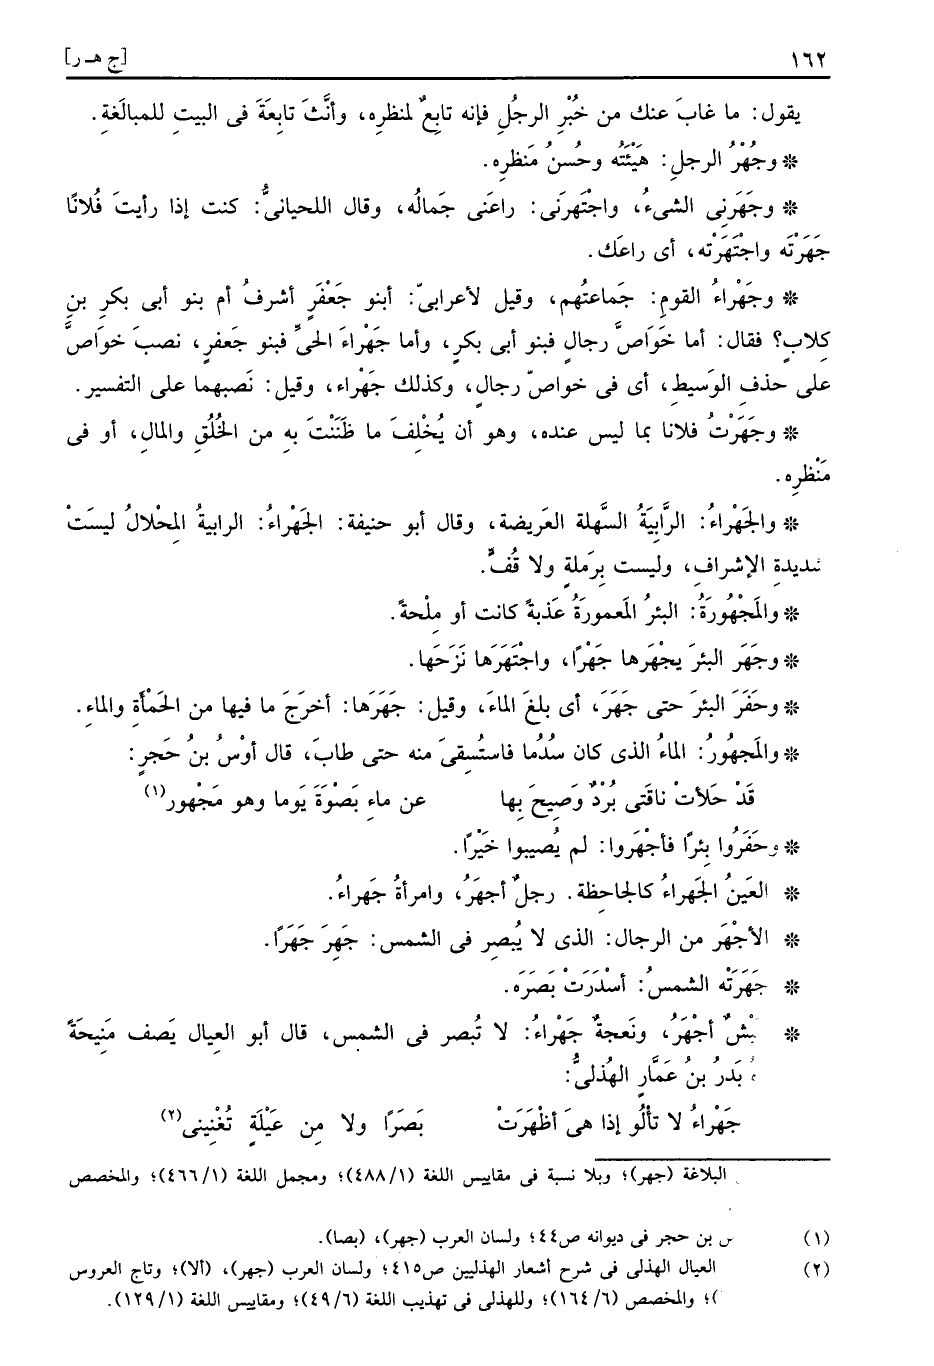 ١٦٢ [ج هـ ر]
يقول: ما غابَ عنك من خُبْرِ الرجُلِ فإنه تابِعٌ لمنظرِه، وأنَّثَ تابِعَةَ فى البيتِ للمبالَغةِ.
* وجُهْرُ الرجلِ: هَيْئَتُه وحُسنُ مَنظرِه.
* وجَهَرَنِى الشىءُ، واجتَهرَنى: راعَنى جَمالُه، وقال اللحيانىُّ: كنت إذا رأيتَ فُلانًا
جَهَرْتَه واجتَهَرْتَه، أى راعَك.
* وجَهْراءُ القومِ: جَماعتُهم، وقيل لأعرابىّ: أبنو جَعْفَرٍ أشرفُ أم بنو أبى بكرِ بنِ
كلابٍ؟ فقال: أما خَوَاصَّ رجالٍ فبنو أبى بكرٍ، وأما جَهْراءَ الحىِّ فبنو جَعفرٍ، نصبَ خواصَّ
على حذفِ الوَسيطِ، أى فى خواصّ رجالٍ، وكذلك جَهْراء، وقيل: نَصبهما على التفسير.
* وجَهَرْتُ فلانا بما ليس عنده، وهو أن يُخْلِفَ ما ظَنَنْتَ به من الخُلُقِ والمالِ، أو فى
مَنْظرِه.
* والجَهْراءُ: الرَّابِيَةُ السَّهلة العَريضة، وقال أبو حنيفة: الجَهْراءُ: الرابيةُ المِحْلالُ ليسَتْ
شديدةِ الإشرافِ، وليست بِرَملةٍ ولا قُفٍّ.
* والمَجْهُورَةُ: البئرُ المَعمورَةُ عَذبةً كانت أو مِلْحةً.
* وجَهَر البئرَ يجْهَرها جَهْرًا، واجْتَهَرَها نَزَحَها.
* وحَفَرَ البئرَ حتى جَهَرَ، أى بلغَ الماءَ، وقيل: جَهَرَها: أخرَجَ ما فيها من الحَمْأَةِ والماءِ.
* والمَجهُورُ: الماءُ الذى كان سُدُما فاستُسقِىَ منه حتى طابَ، قال أوْسُ بنُ حَجرٍ:
قَدْ حَلأتْ ناقَتى بُرْدٌ وَصِيحَ بِها عن ماءِ بَصْوَةَ يَوما وهو مَجْهورُ(١)
* وحَفَرُوا بئرًا فأجْهَروا: لم يُصيبوا خَيْرًا.
* العَينُ الجَهراءُ كالجاحِظة. رجلٌ أجهَرُ، وامرأةُ جَهراءُ.
* الأجْهَر من الرجال: الذى لا يُبصِر فى الشمس: جَهِرَ جَهَرًا.
* جَهَرَتْه الشمسُ: أسْدَرَتْ بَصَرَه.
* أجْهَرُ، ونَعجةٌ جَهْراءُ: لا تُبصر فى الشمس، قال أبو العيال يَصف مَنِيحَةً
بَدرُ بنُ عَمَّارٍ الهُذلىُّ:
جَهْراءُ لا تألُو إذا هىَ أظْهَرَتْ بَصَرًا ولا مِن عَيْلَةٍ تُغْنِينى(٢)
البلاغة (جهر)؛ وبلا نسبة فى مقاييس اللغة (٤٨٨/١)؛ ومجمل اللغة (٤٦٦/١)؛ والمخصص
(١) بن حجر فى ديوانه ص٤٤؛ ولسان العرب (جهر)، (بصا).
(٢) العيال الهذلى فى شرح أشعار الهذليين ص٤١٥؛ ولسان العرب (جهر)، (ألا)؛ وتاج العروس
)؛ والمخصص (١٦٤/٦)؛ وللهذلى فى تهذيب اللغة (٤٩/٦)؛ ومقاييس اللغة (١٢٩/١).